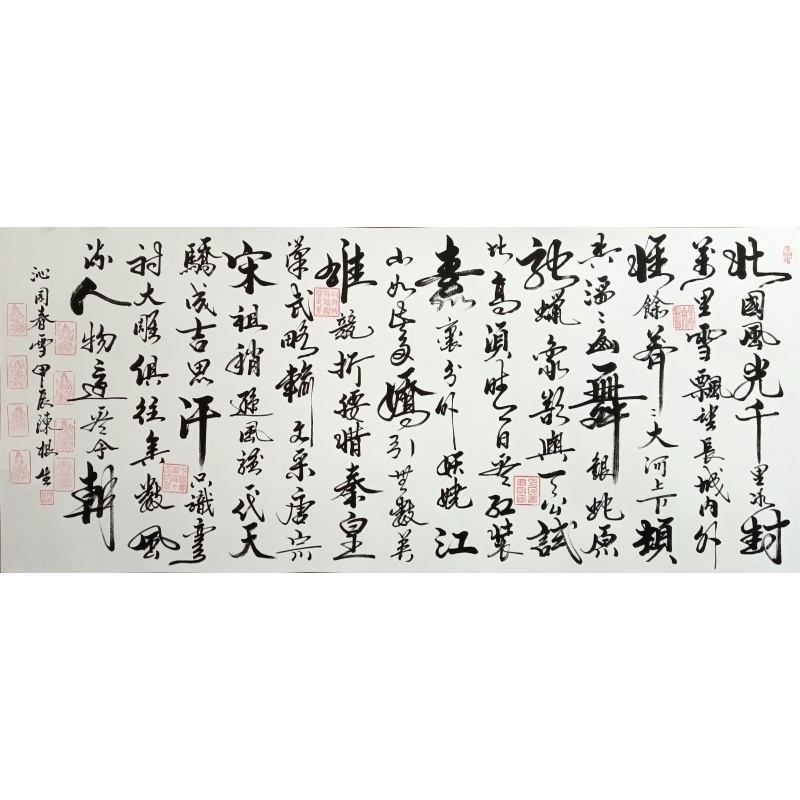 北國風光千里冰封
萬里雪飄望長城內外
惟餘莽〻大河上下頓
失滔〻山舞銀蛇原
馳蠟象欲與天公試
比高須晴日看紅裝
素裹分外妖嬈江
山如此多嬌引無數英
雄競折腰惜秦皇
漢武略輸文采唐宗
宋祖稍遜風騷一代天
驕成吉思汗只識彎
射大雕俱往矣數風
流人物還看今朝
沁園春雪甲辰陳根生